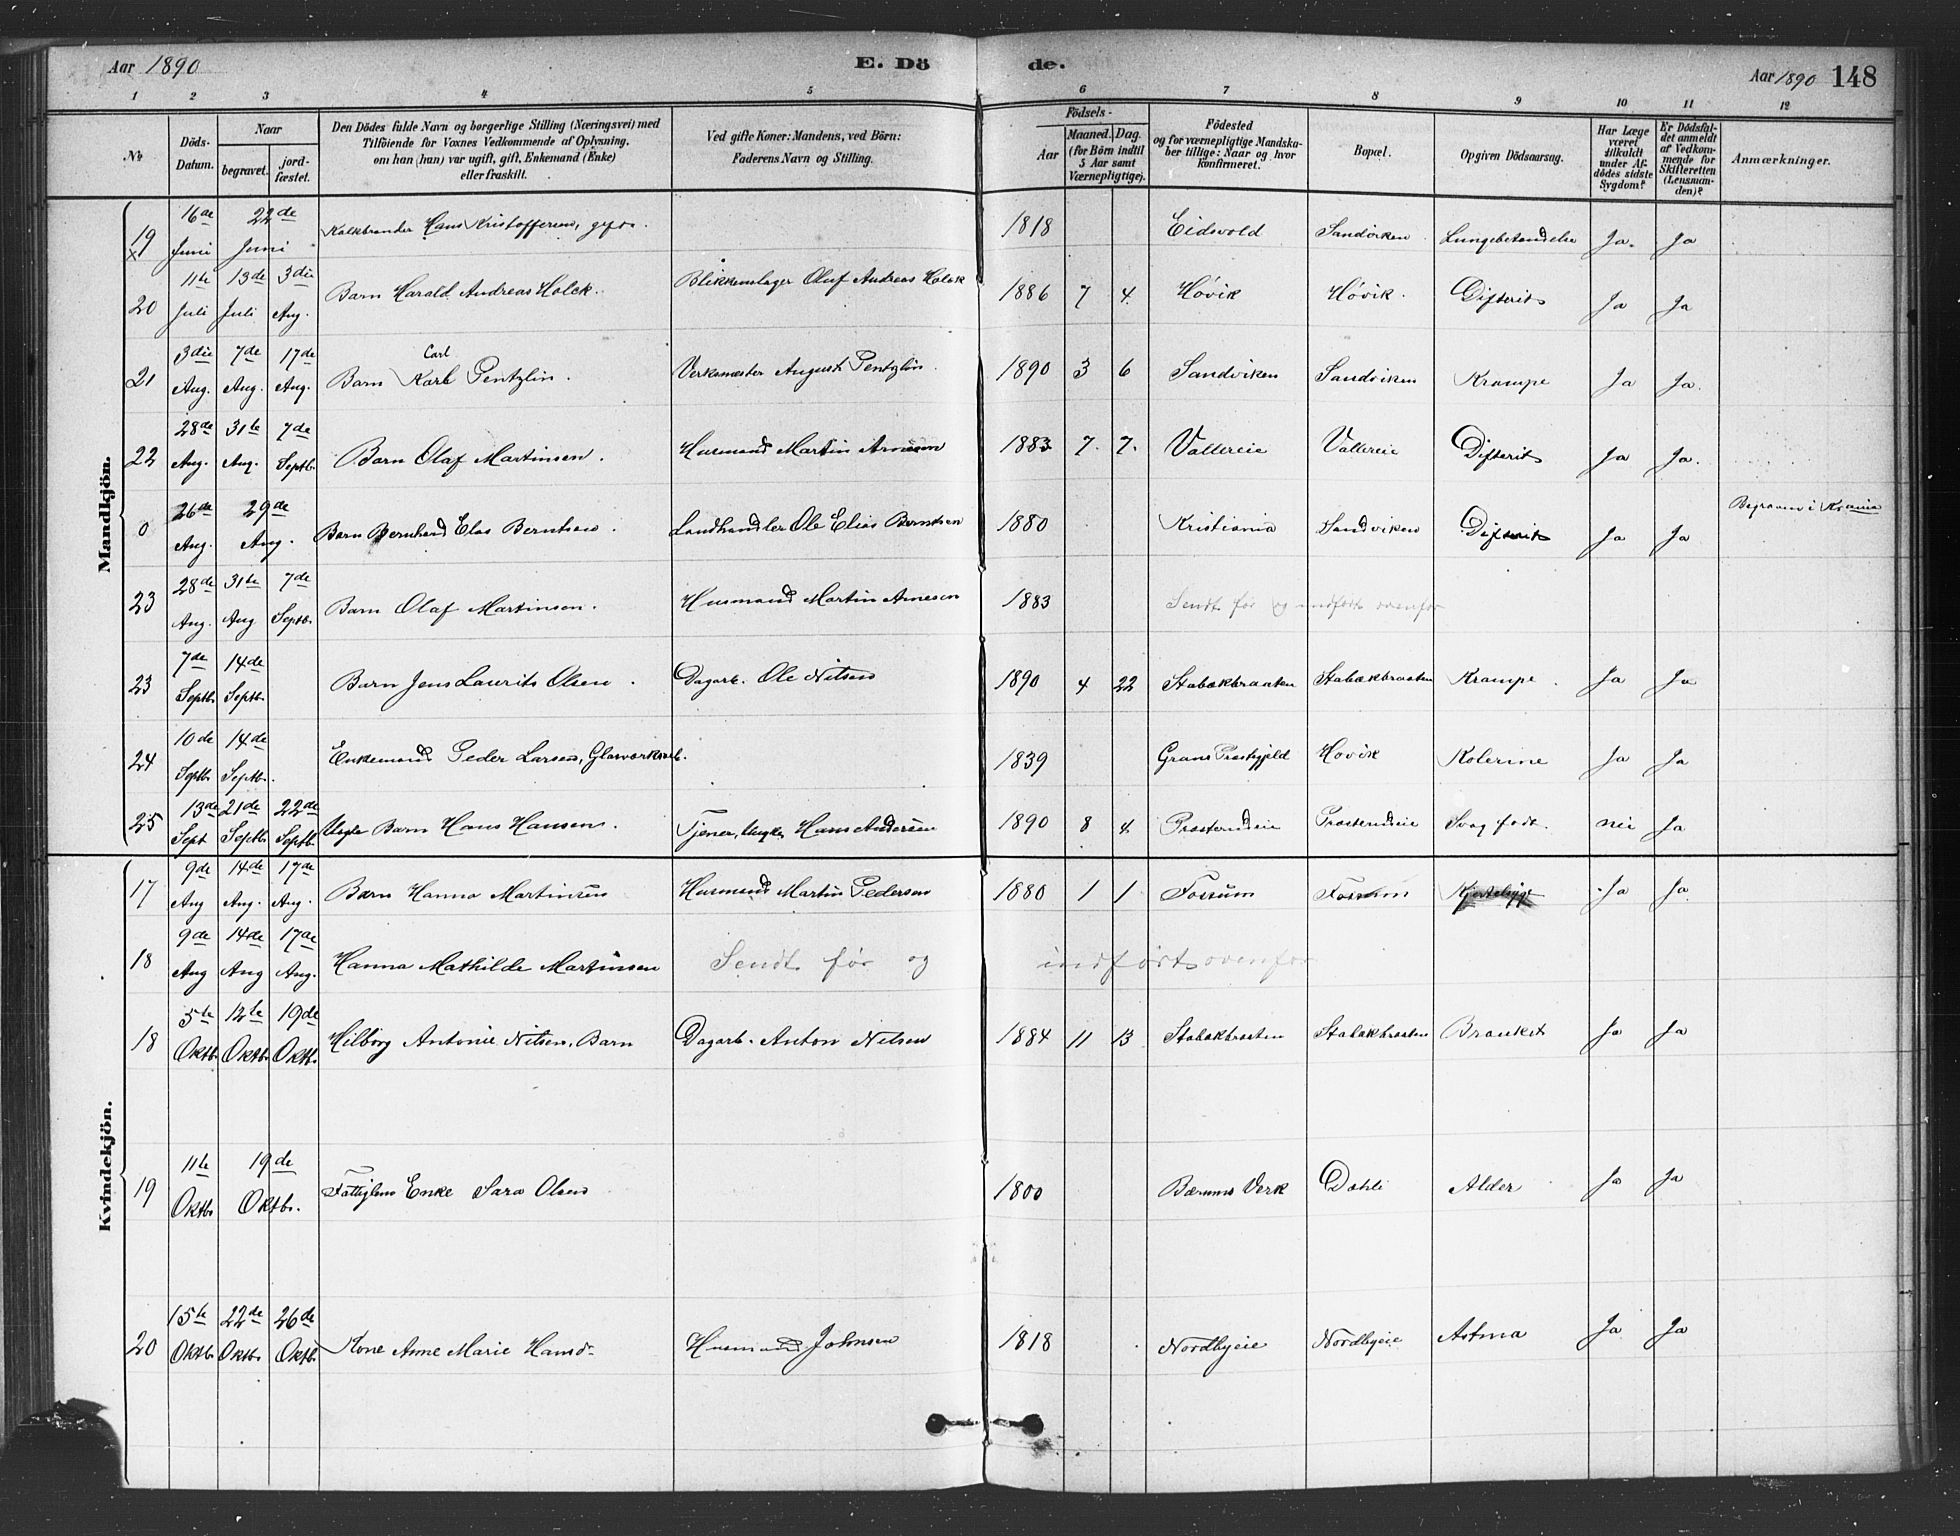 Aar 1890 E. Dö de. Aar 1890 148
1 2 3 4 5 6 7 8 9 10 11 12
No. Döds-Datum. Naar begravet. jord-fæstet. Den Dödes fulde Navn og borgerlige Stilling (Næringsvei) med Tilföiende for Voxnes Vedkommende af Oplysning. om han (hun) var ugift, gift, Enkemand (Enke) eller fraskilt. Ved gifte Koner: Mandens, ved Börn: Faderens Navn og Stilling. Födsels- Aar Maaned. Dag. (for Börn indtil 5 Aar samt Værnepligtige). Födested og for værnepligtige Mandska-ber tillige: Naar og hvor konfirmeret. Bopæl. Opgiven Dödsaarsag. Har Læge været tilkaldt under Af-dödes sidste Sygdom? Er Dödsfal-det anmeldt af Vedkom-mende for Skifteretten (Lensman-den)? Anmærkninger.
Mandkjön.
19 16de Juni 22de Juni Kalkbrænder Hans Kristoffersen, 1818 Eidsvold Sandviken Lungebetændelse Ja Ja
20 11te Juli 13de Juli 3die Aug. Barn Harald Andreas Holck. Blikkenslager Oluf Andreas Holck 1886 7 4 Høvik Høvik. Difterit Ja Ja
21 3die Aug. 7de Aug. 17de Aug. Barn Carl Karl Pentzlin. Verksmester August Pentzlin 1890 3 6 Sandviken Sandviken Krampe Ja Ja.
22 28de Aug. 31te Aug. 7de Septb. Barn Olaf Martinsen. Husmand Martin Arnesen 1883 7. 7. Vallereie Vallereie Difterit Ja Ja.
0 26de Aug. 29de Aug. Barn Bernhard Elas Berntsen Landhandler Ole Elias Berntsen 1880 Kristiania Sandviken Difterit Ja Ja Begraven i Krania
23 28de Aug. 31te Aug 7de Septb. Barn Olaf Martinsen. Husmand Martin Arnesen 1883 Sendt før og indført ovenfor
23 7de Septb. 14de Septb. Barn Jens Laurits Olsen. Dagarb. Ole Nilsen 1890 4 22 Stabækbraaten Stabækbraaten Krampe. Ja Ja
24 10de Septb. 14de Septb. Enkemand Peder Larsen, Glasværksarb. 1839 Grans Præstegjeld Høvik Kolerine Ja Ja
25 13de Sept 21de Septb. 22de Septb. Uægte Barn Hans Hansen. Tjener, Ungk. Hans Andersen 1890 8 4 Præsterudeie Præsterudeie Svag født. nei Ja
Kvindekjön.
17 9de Aug 14de Aug. 17de Aug. Barn Hanna Martinsen Husmand Martin Pedersen 1880 1 1 Fossum Fossum Kjertelsyge Ja Ja
18 9de Aug 14de Aug 17de Aug. Hanna Mathilde Martinsen Sendt før og indført ovenfor
18 5te Oktb. 12te Oktb. 19de Oktb. Hilborg Antonie Nilsen, Barn Dagarb. Anton Nilsen 1884 11 13 Stabækbraaten Stabækbraaten Bronkit Ja Ja
19 11te Oktb. 19de Oktb. Fattiglem Enke Sara Olsen 1800 Bærums Verk Dæhli Alder Ja Ja
20 15te Oktb. 22de Oktb. 26de Oktb. Kone Anne Marie Hansd. Husmand Johnsen 1818 Nordbyeie Nordbyeie Astma Ja Ja